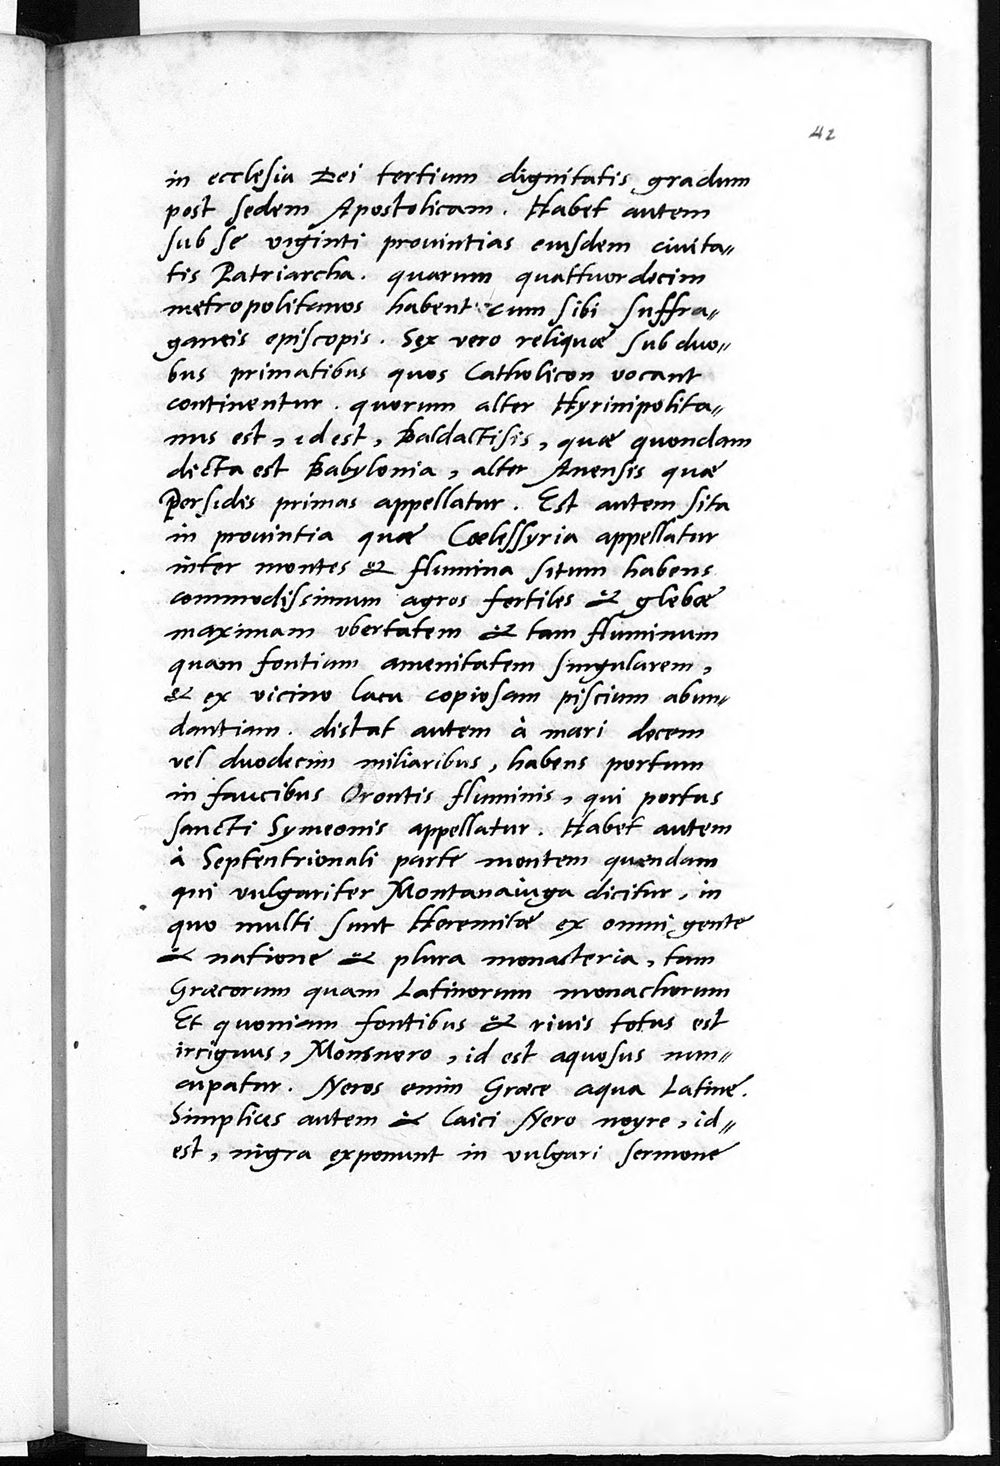 42
in ecclesia Dei tertium dignitatis gradum
post sedem Apostolicam. Habet autem
sub se viginti prouintias eiusdem ciuita„
tis Patriarcha. quarum quattuordecim
metropolitanos habent cum sibi suffra„
ganeis episcopis. Sex vero reliquæ sub duo„
bus primatibus quos Catholicon vocant
continentur. quorum alter Hyrinipolita„
nus est, id est, Baldactisis, quæ quondam
dicta est Babylonia, alter Anensis quæ
Persidis primas appellatur. Est autem sita
in prouintia quæ Cœlessyria appellatur
inter montes & flumina situm habens
commodissimum agros fertiles & glebæ
maximam vbertatem & tam fluminum
quam fontium amenitatem singularem,
& ex vicino lacu copiosam piscium abun„
dantiam. distat autem à mari decem
vel duodecim miliaribus, habens portum
in faucibus Orontis fluminis, qui portus
sancti Symeonis appellatur. Habet autem
à Septentrionali parte montem quendam
qui vulgariter Montanaiuga dicitur, in
quo multi sunt Heremitæ ex omni gente
& natione & plura monasteria, tam
Græcorum quam Latinorum monachorum
Et quoniam fontibus & riuis totus est
irriguus, Monsnero, id est aquosus nun„
cupatur. Neros enim Græce aqua Latine.
Simplices autem & laici Nero noyre, id„
est, nigra exponunt in vulgari sermone